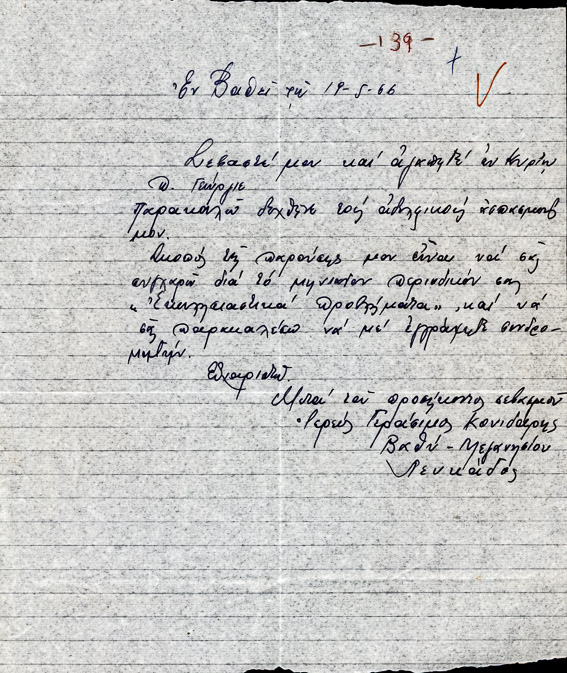 -139-
+ V
Ἐν Βαθεῖ τῇ 19-5-66
Σεβαστέ μου καί ἀγαπητέ ἐν Κυρίῳ
π. Γεώργιε
Παρακαλῶ δεχθῆτε τούς ἀδελφικούς ἀσπασμούς
μου.
Σκοπός τῆς παρούσης μου εἶναι νά σᾶς
συγχαρῶ διά τό μηνιαῖον περιοδικόν σας
"Ἐκκλησιαστικά Προβλήματα", καί νά
σᾶς παρακαλέσω νά μέ ἐγγράψητε συνδρο-
μητήν.
Εὐχαριστῶ.
Μετά τοῦ προσήκοντος σεβασμοῦ
Ἱερεύς Γεράσιμος Κονιδάρης
Βαθύ - Μεγανησίου
Λευκάδος